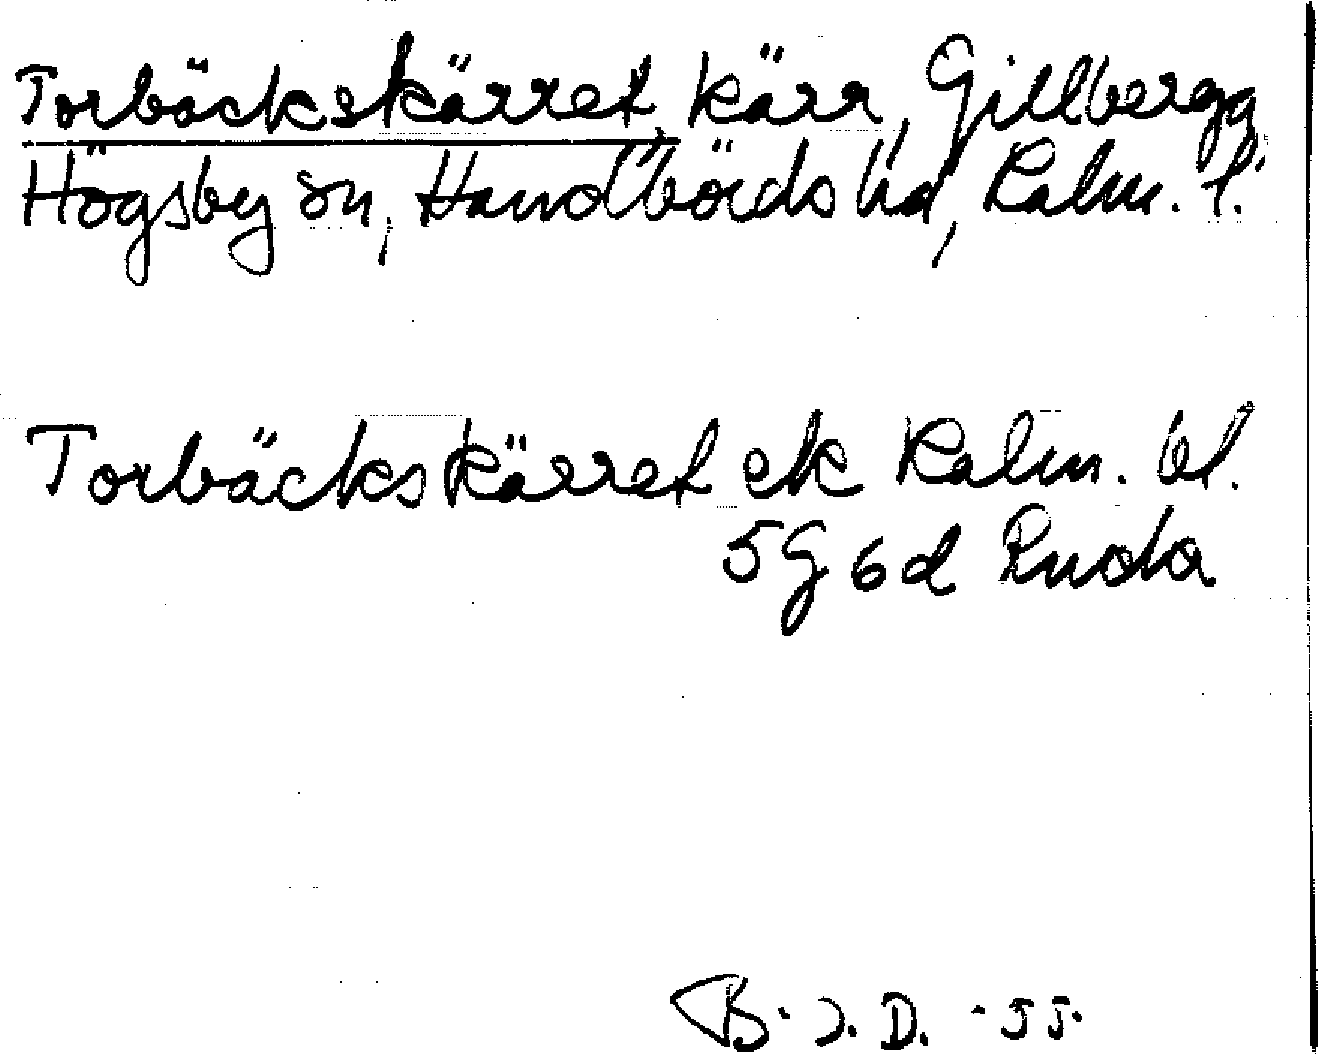 Torbäckskärret, kärr, Gillberga,
Högsby sn, Handbörds hd, Kalm. l.
Torbäckskärret ek Kalm. bl.
5G 6d Ruda
B. J. D. -55.